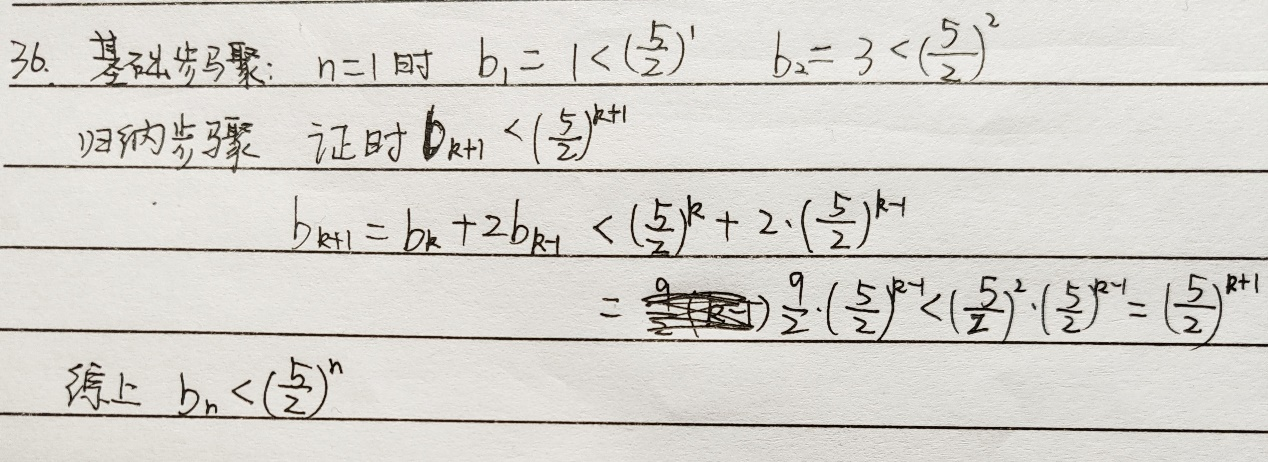 36. 基础步骤: n=1时 b₁= 1<(5/2)¹ b₂= 3<(5/2)²
归纳步骤 证时 b_{k+1} <(5/2)^{k+1}
b_{k+1} = b_k +2b_{k-1} < (5/2)^k + 2·(5/2)^{k-1}
= 9/2·(5/2)^{k-1} < (5/2)²·(5/2)^{k-1} = (5/2)^{k+1}
综上 b_n <(5/2)^n